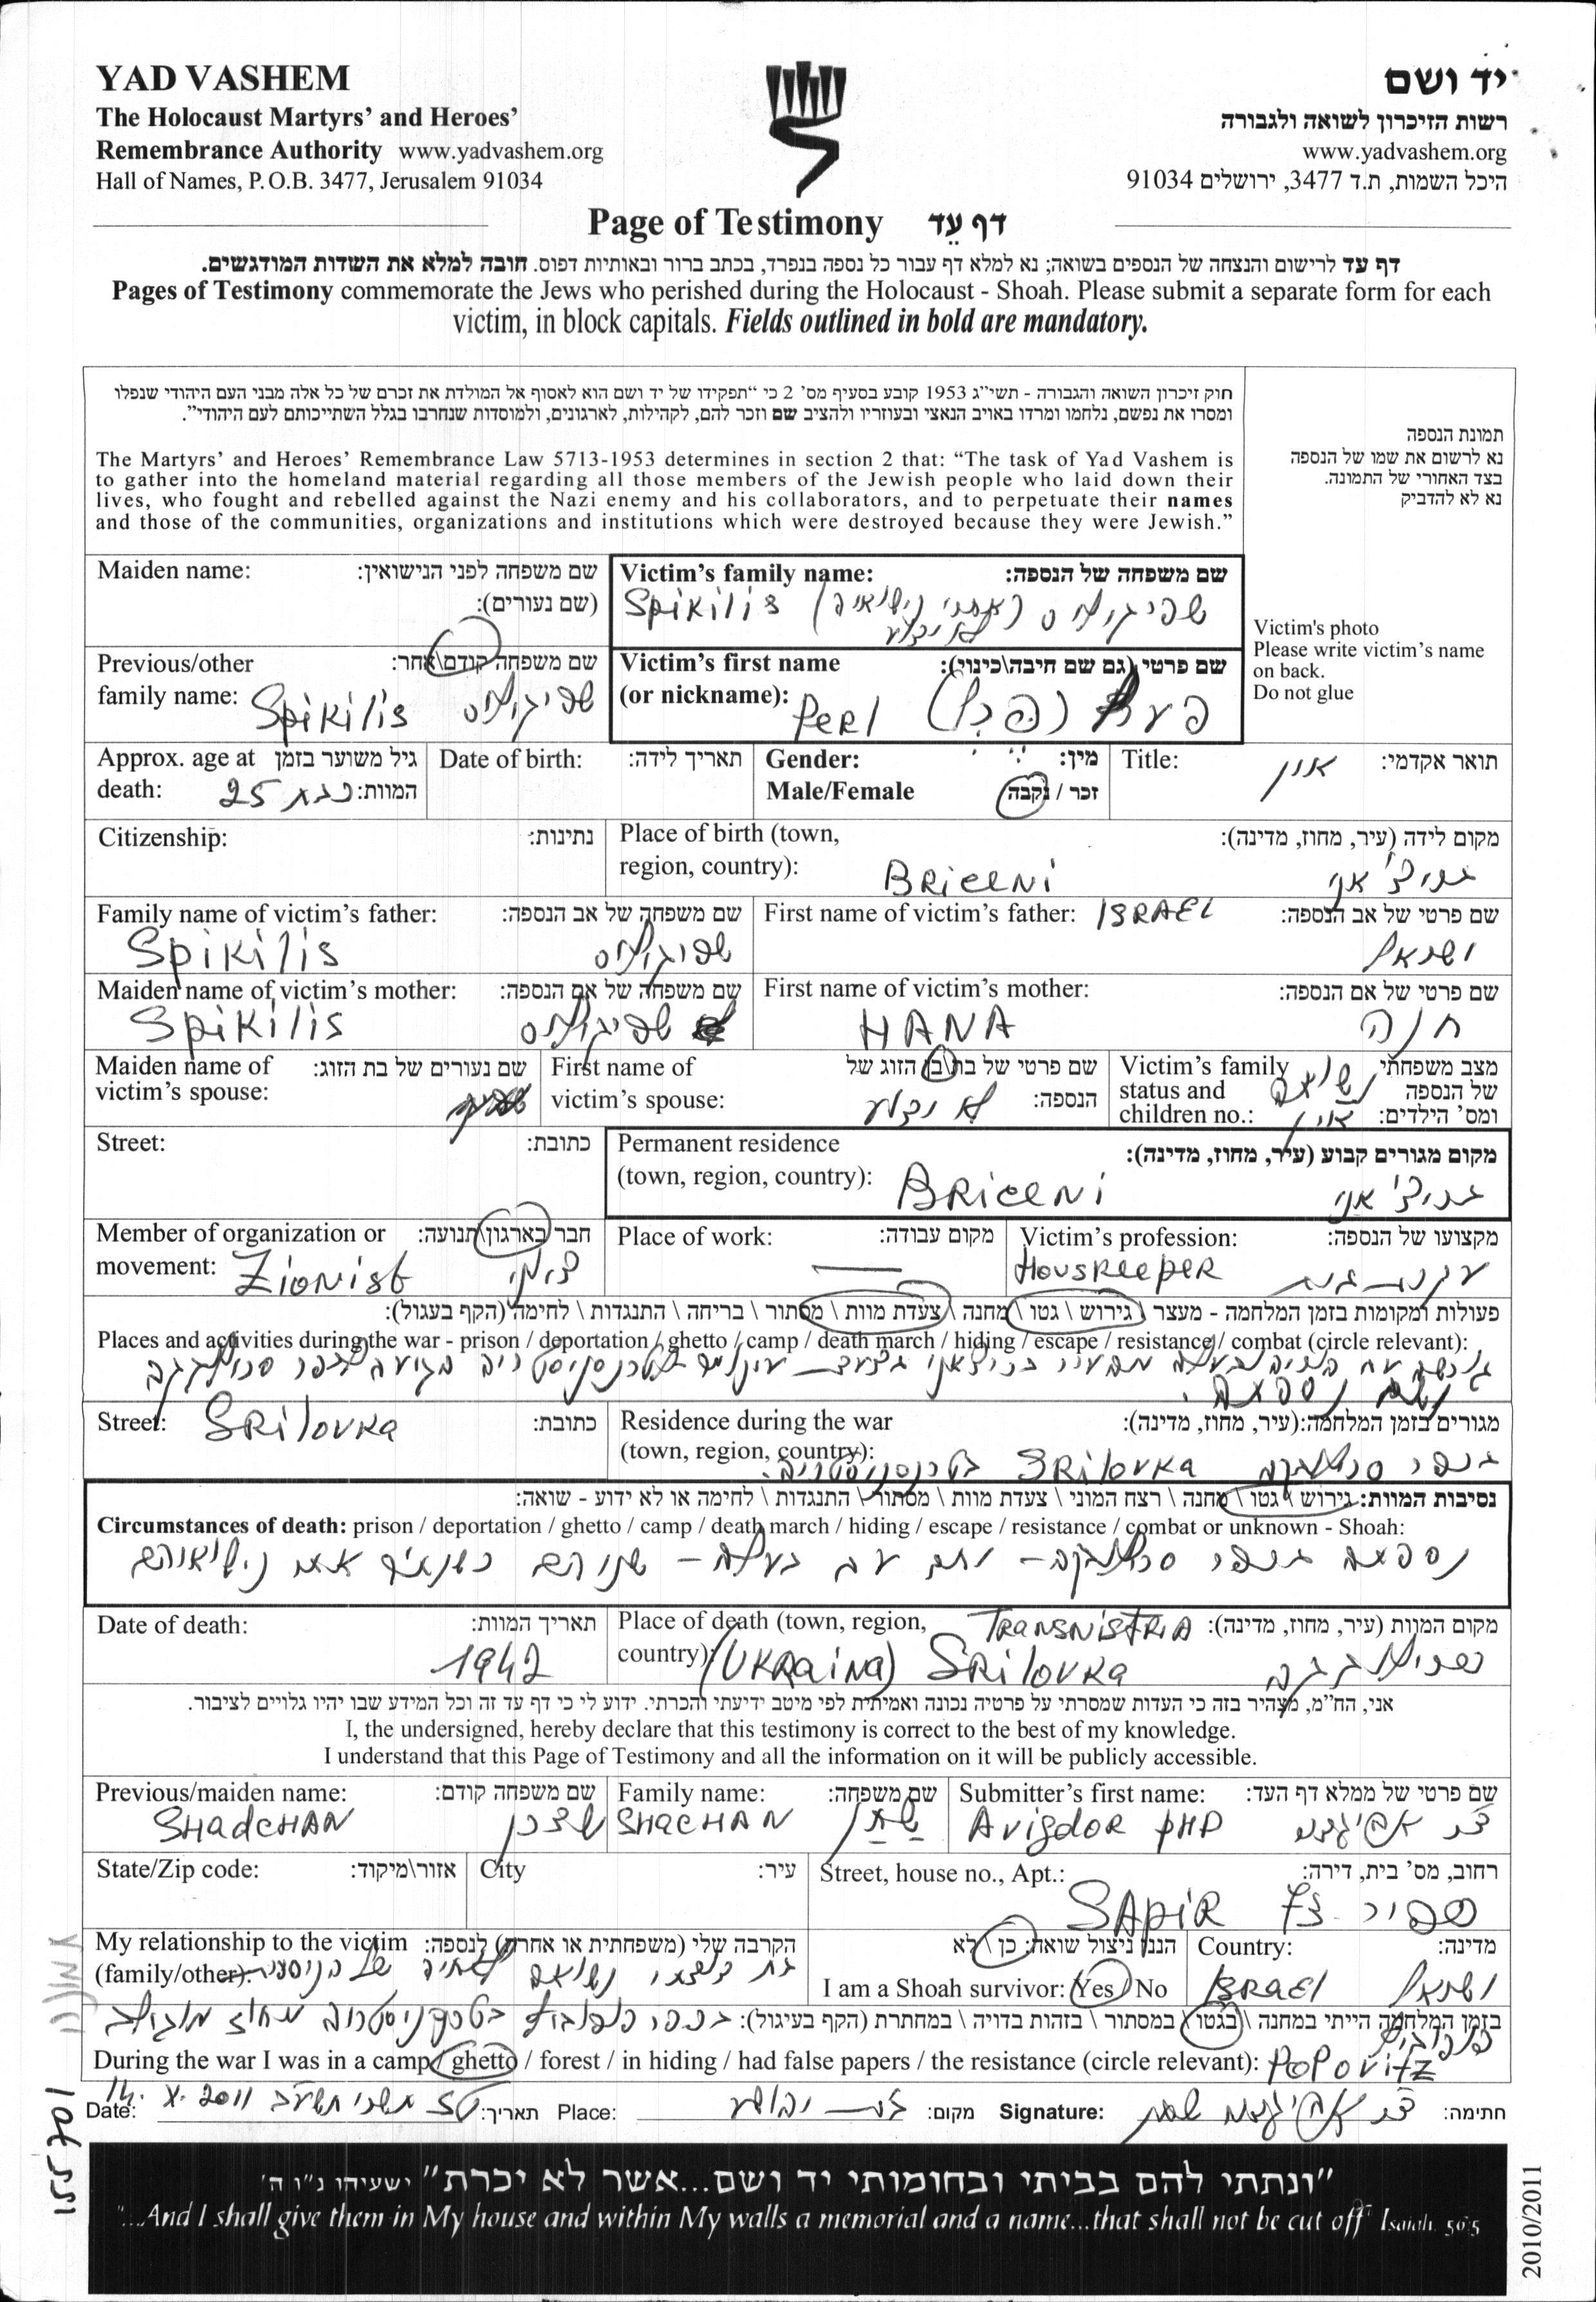 YAD VASHEM
The Holocaust Martyrs' and Heroes'
Remembrance Authority www.yadvashem.org
Hall of Names, P.O.B. 3477, Jerusalem 91034
יד ושם
רשות הזיכרון לשואה ולגבורה
www.yadvashem.org
היכל השמות, ת.ד 3477, ירושלים 91034
Page of Testimony דף עֵד
דף עד לרישום והנצחה של הנספים בשואה; נא למלא דף עבור כל נספה בנפרד, בכתב ברור ובאותיות דפוס. חובה למלא את השדות המודגשים.
Pages of Testimony commemorate the Jews who perished during the Holocaust - Shoah. Please submit a separate form for each
victim, in block capitals. Fields outlined in bold are mandatory.
חוק זיכרון השואה והגבורה - תשי"ג 1953 קובע בסעיף מס' 2 כי "תפקידו של יד ושם הוא לאסוף אל המולדת את זכרם של כל אלה מבני העם היהודי שנפלו
ומסרו את נפשם, נלחמו ומרדו באויב הנאצי ובעוזריו ולהציב שם וזכר להם, לקהילות, לארגונים, ולמוסדות שנחרבו בגלל השתייכותם לעם היהודי".
The Martyrs' and Heroes' Remembrance Law 5713-1953 determines in section 2 that: "The task of Yad Vashem is
to gather into the homeland material regarding all those members of the Jewish people who laid down their
lives, who fought and rebelled against the Nazi enemy and his collaborators, and to perpetuate their names
and those of the communities, organizations and institutions which were destroyed because they were Jewish."
תמונת הנספה
נא לרשום את שמו של הנספה
בצד האחורי של התמונה.
נא לא להדביק
Victim's photo
Please write victim's name
on back.
Do not glue
Maiden name: שם משפחה לפני הנישואין:
(שם נעורים):
Victim's family name: שם משפחה של הנספה:
Spikilis שפיגוליס
Previous/other שם משפחה קודם\אחר:
family name: Spikilis שפיגוליס
Victim's first name שם פרטי (גם שם חיבה\כינוי):
(or nickname): Perl
Approx. age at גיל משוער בזמן
death: 25 המוות:
Date of birth: תאריך לידה:
Gender: מין:
Male/Female זכר / נקבה
Title: תואר אקדמי: אין
Citizenship: נתינות:
Place of birth (town, מקום לידה (עיר, מחוז, מדינה):
region, country): Briceni בריצ'אני
Family name of victim's father: שם משפחה של אב הנספה:
Spikilis שפיגוליס
First name of victim's father: ISRAEL שם פרטי של אב הנספה:
ישראל
Maiden name of victim's mother: שם משפחה של אם הנספה:
Spikilis שפיגוליס
First name of victim's mother: שם פרטי של אם הנספה:
HANA חנה
Maiden name of שם נעורים של בת הזוג:
victim's spouse:
First name of שם פרטי של בת\בן הזוג של
victim's spouse: הנספה: לא ידוע
Victim's family מצב משפחתי
status and של הנספה נשואה
children no.: ומס' הילדים: אין
Street: כתובת:
Permanent residence מקום מגורים קבוע (עיר, מחוז, מדינה):
(town, region, country): Briceni בריצ'אני
Member of organization or חבר בארגון\תנועה:
movement: Zionist ציוני
Place of work: מקום עבודה:
Victim's profession: מקצועו של הנספה:
Houskeeper עקרת-בית
פעולות ומקומות בזמן המלחמה - מעצר \ גירוש \ גטו \ מחנה \ צעדת מוות \ מסתור \ בריחה \ התנגדות \ לחימה (הקף בעגול):
Places and activities during the war - prison / deportation / ghetto / camp / death march / hiding / escape / resistance / combat (circle relevant):
Street: Srilovka כתובת:
Residence during the war מגורים בזמן המלחמה:(עיר, מחוז, מדינה):
(town, region, country): Srilovka
נסיבות המוות: גירוש \ גטו \ מחנה \ רצח המוני \ צעדת מוות \ מסתור \ התנגדות \ לחימה או לא ידוע - שואה:
Circumstances of death: prison / deportation / ghetto / camp / death march / hiding / escape / resistance / combat or unknown - Shoah:
Date of death: תאריך המוות:
1942
Place of death (town, region, TRANSNISTRIA מקום המוות (עיר, מחוז, מדינה):
country): (UKRAINA) Srilovka
אני, הח"מ, מצהיר בזה כי העדות שמסרתי על פרטיה נכונה ואמיתית לפי מיטב ידיעתי והכרתי. ידוע לי כי דף עד זה וכל המידע שבו יהיו גלויים לציבור.
I, the undersigned, hereby declare that this testimony is correct to the best of my knowledge.
I understand that this Page of Testimony and all the information on it will be publicly accessible.
Previous/maiden name: שם משפחה קודם:
SHADCHAN שדכן
Family name: שם משפחה:
SHACHAN שחן
Submitter's first name: שם פרטי של ממלא דף העד:
Avigdor PHD ד"ר אביגדור
State/Zip code: אזור\מיקוד:
City עיר:
Street, house no., Apt.: רחוב, מס' בית, דירה:
SAPIR ספיר
My relationship to the victim הקרבה שלי (משפחתית או אחרת) לנספה:
(family/other):
הנני ניצול שואה: כן \ לא
I am a Shoah survivor: Yes / No
Country: מדינה:
ISRAEL ישראל
בזמן המלחמה הייתי במחנה \ בגטו \ במסתור \ בזהות בדויה \ במחתרת (הקף בעיגול):
During the war I was in a camp / ghetto / forest / in hiding / had false papers / the resistance (circle relevant): POPOVITZ
Date: 14. X. 2011 תאריך: Place: מקום: Signature: חתימה:
"ונתתי להם בביתי ובחומותי יד ושם...אשר לא יכרת" ישעיהו נ"ו ה'
"...And I shall give them in My house and within My walls a memorial and a name...that shall not be cut off" Isaiah 56:5
155701
2010/2011